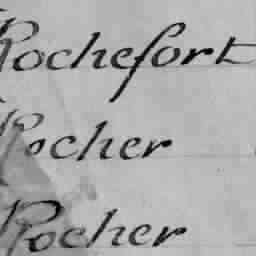 Rochefort
Rocher
Rocher